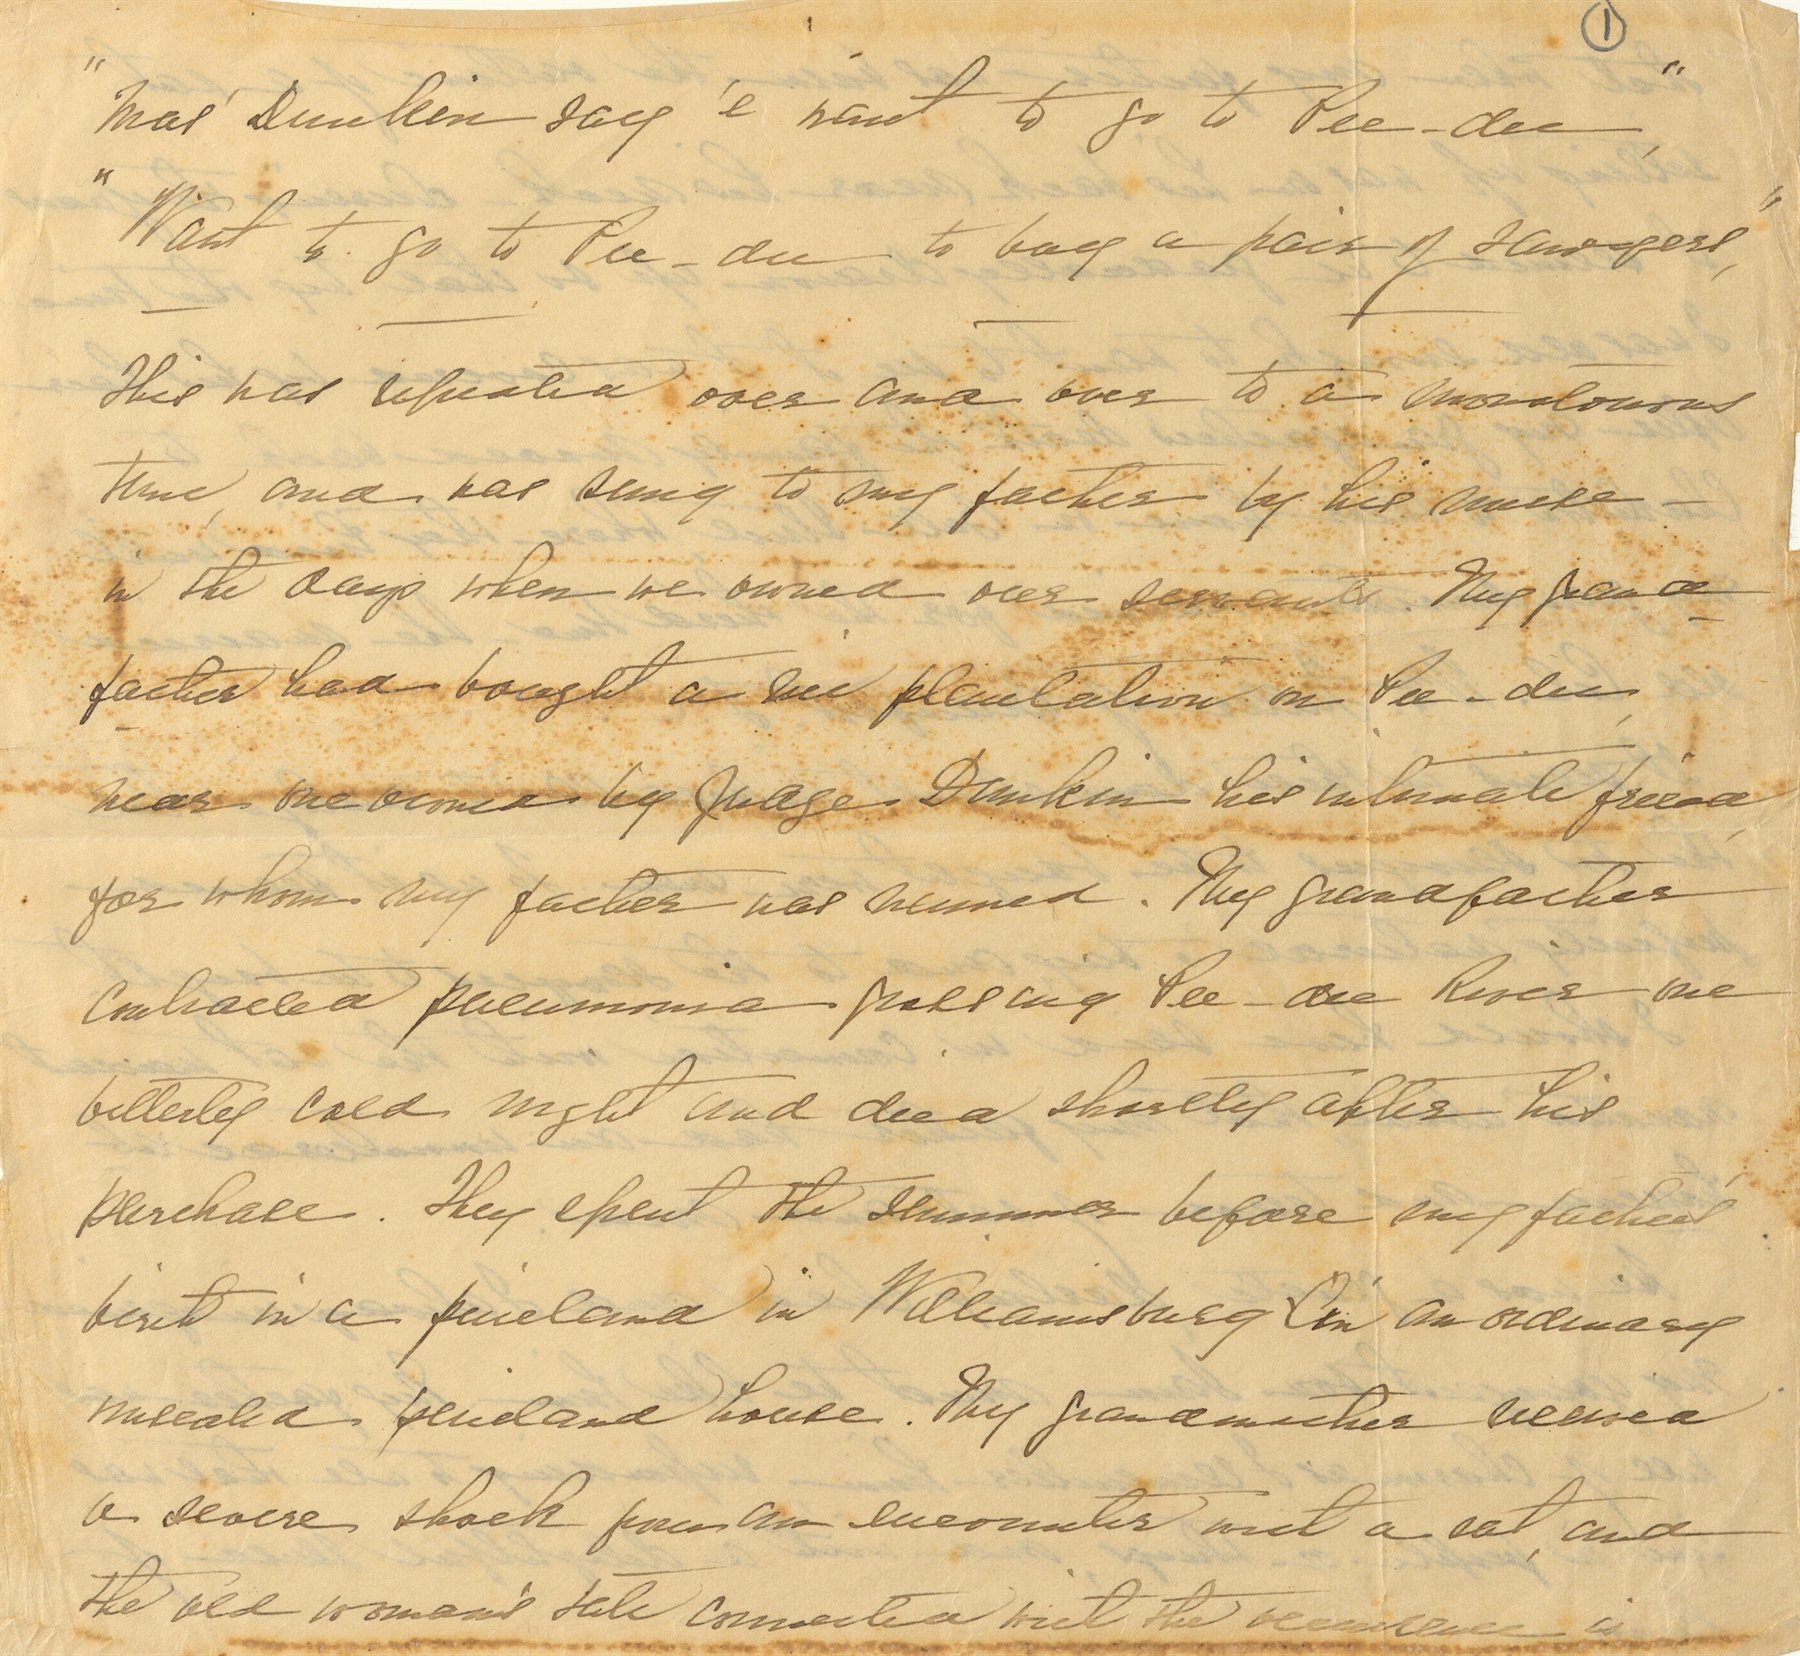 ①
"Mas' Dunkin say 'e want to go to Pee-dee,"
"Want to go to Pee-dee to buy a pair of
This was repeated over and over to a monotonous
tune, and was sung to my father by his nurse –
in the days when we owned our servants. My grand-
father had bought a rice plantation on Pee-dee,
near one owned by Judge Dunkin his intimate friend,
for whom my father was named. My grandfather
contracted pneumonia crossing Pee-dee River one
bitterly cold night and died shortly after his
purchase. They spent the summer before my father's
birth in a pineland in Williamsburg (in an ordinary
pineland house. My grandmother received
a severe shock from an encounter with a cat, and
the old woman's tale connected with the occurrence is